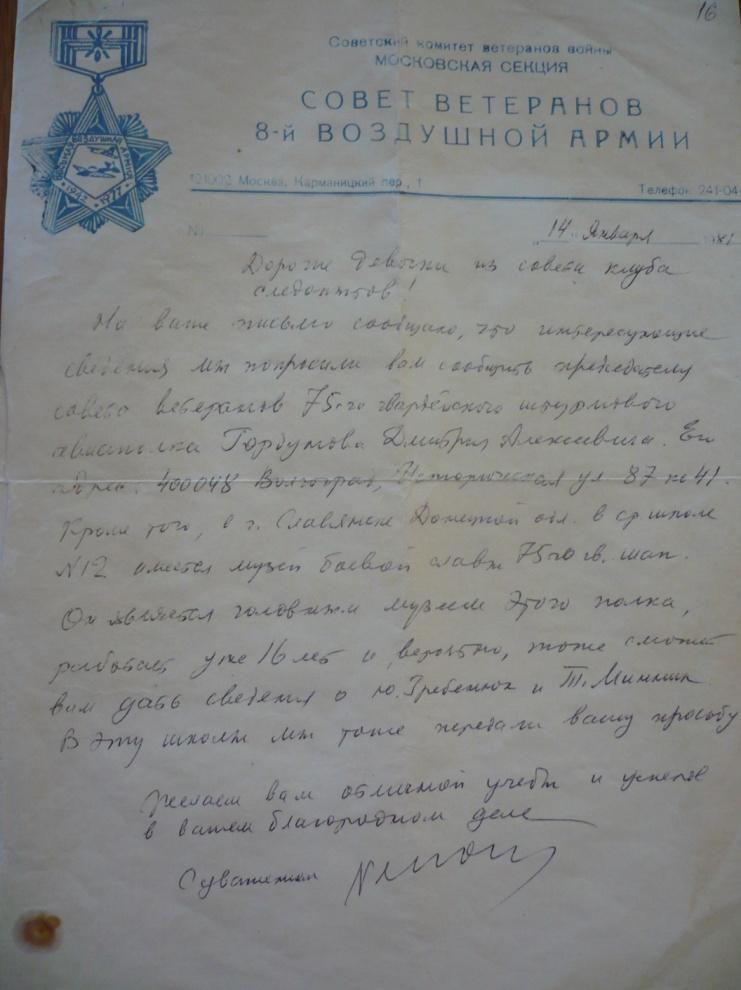 16
Советский комитет ветеранов войны
МОСКОВСКАЯ СЕКЦИЯ
СОВЕТ ВЕТЕРАНОВ
8-й ВОЗДУШНОЙ АРМИИ
121002 Москва, Карманицкий пер., 1
Телефон 241-04-
ВОСЬМАЯ ВОЗДУШНАЯ АРМИЯ
1942 1977
№
"14" Января 1981
Дорогие девочки из совета клуба
следопытов!
На ваше письмо сообщаю, что интересующие
сведения мы попросили вам сообщить председателю
совета ветеранов 75-го гвардейского штурмового
авиаполка Горбунова Дмитрия Алексеевича. Его
адрес: 400048 Волгоград, Историческая ул 87 кв 41.
Кроме того, в г. Славянске Донецкой обл. в ср школе
N12 имеется музей боевой славы 75го гв. шап.
Он является головным музеем этого полка,
работает уже 16 лет и, вероятно, тоже сможет
вам дать сведения о Ю. Гребенюк и Т.
В эту школу мы тоже передали вашу просьбу
Желаем вам отличной учебы и успехов
в вашем благородном деле
С уважением